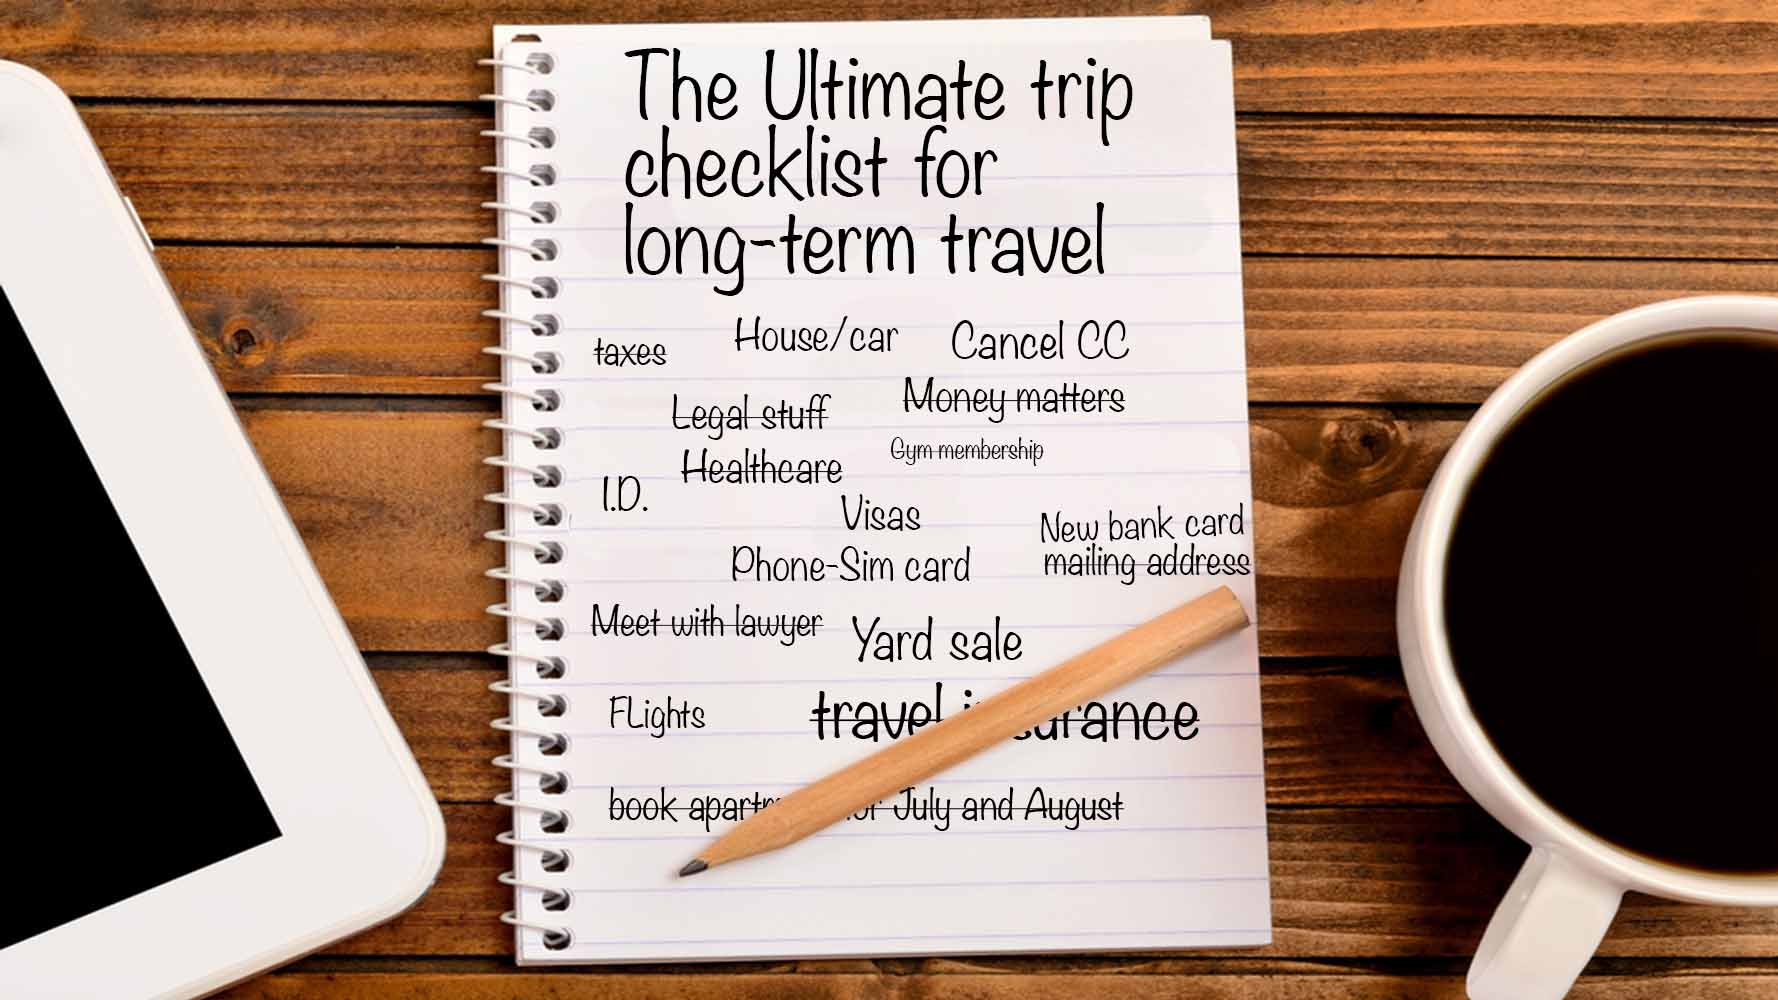 The Ultimate trip
checklist for
long-term travel
taxes
House/car
Cancel CC
Legal stuff
Money matters
Healthcare
Gym membership
I.D.
Visas
New bank card
mailing address
Phone-Sim card
Meet with lawyer
Yard sale
FLights
travel insurance
book July and August